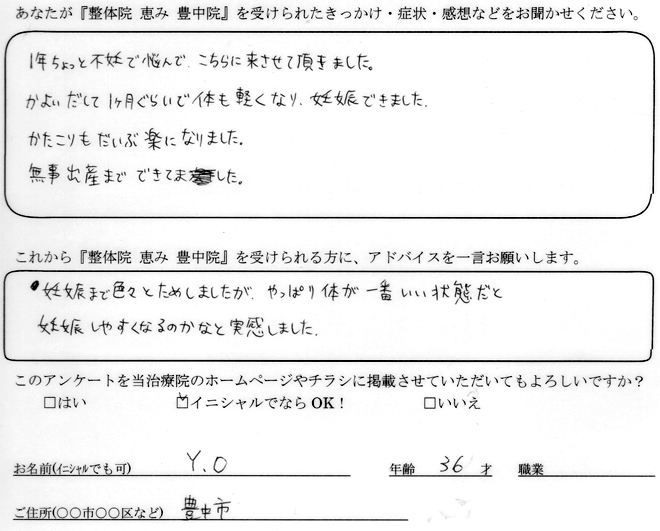 あなたが『整体院 恵み 豊中院』を受けられたきっかけ・症状・感想などをお聞かせください。
1年ちょっと不妊で悩んで、こちらに来させて頂きました。
かよいだして1ヶ月ぐらいで体も軽くなり、妊娠できました。
かたこりもだいぶ楽になりました。
無事出産までできてました。
これから『整体院 恵み 豊中院』を受けられる方に、アドバイスを一言お願いします。
・妊娠まで色々とためしましたが、やっぱり体が一番いい状態だと
妊娠しやすくなるのかなと実感しました。
このアンケートを当治療院のホームページやチラシに掲載させていただいてもよろしいですか?
□はい ☑イニシャルでならOK! □いいえ
お名前(イニシャルでも可) Y.O 年齢 36 才 職業
ご住所(○○市○○区など) 豊中市